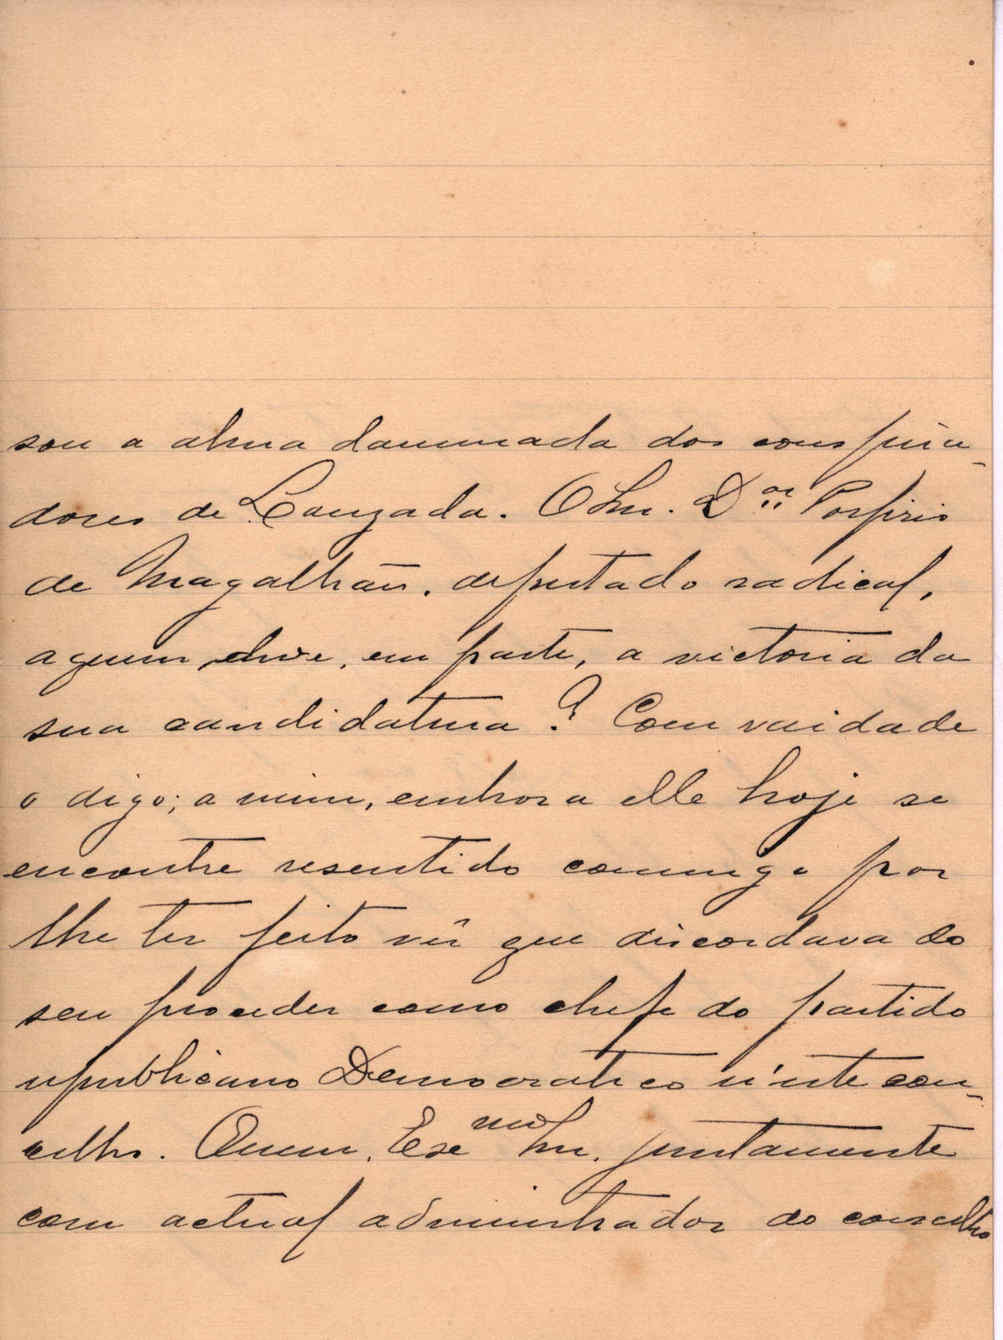 sou a alma damnada dos conspira-
dores de Louzada. O Snr. Dor Porfirio
de Magalhães, deputado radical,
a quem deve, em parte, a victoria da
sua candidatura? Com vaidade
o digo; a mim, embora elle hoje se
encontre resentido commigo por
lhe ter feito vêr que discordava do
seu proceder como chefe do partido
republicano Democratico n'este con-
celho. Quem, Exc mo Snr. juntamente
com actual administrador do concelho